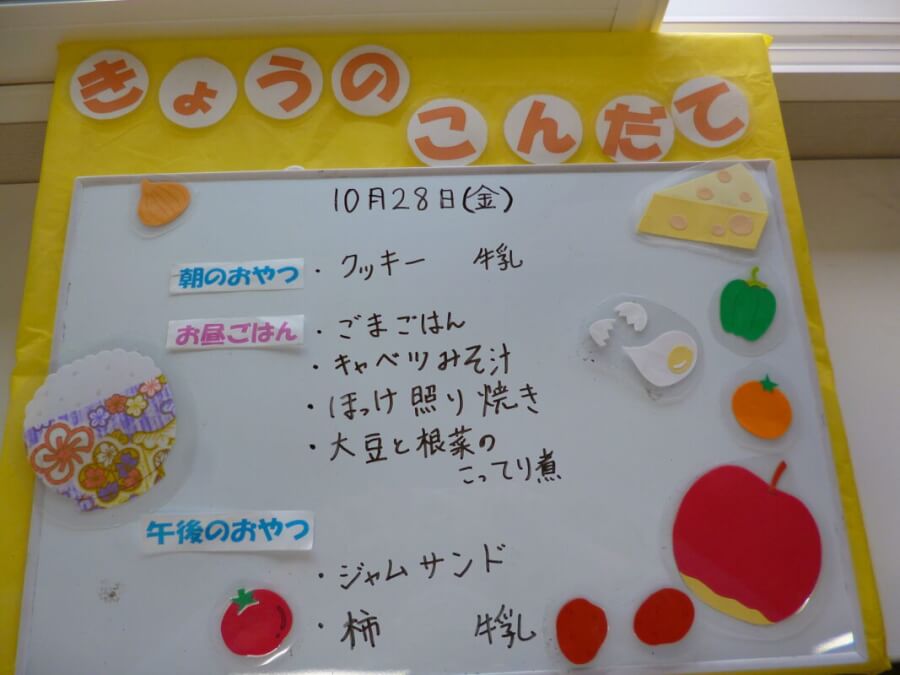 きょうの
こんだて
10月28日(金)
朝のおやつ ・クッキー 牛乳
お昼ごはん ・ごまごはん
・キャベツみそ汁
・ほっけ照り焼き
・大豆と根菜の
こってり煮
午後のおやつ
・ジャムサンド
・柿 牛乳